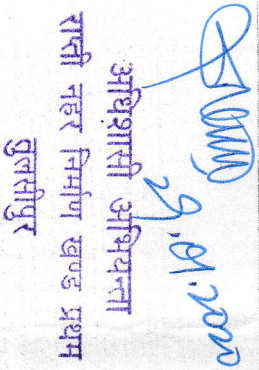 29.01.2020
अधिशासी अभियन्ता
राप्ती नहर निर्माण खण्ड प्रथम
तुलसीपुर